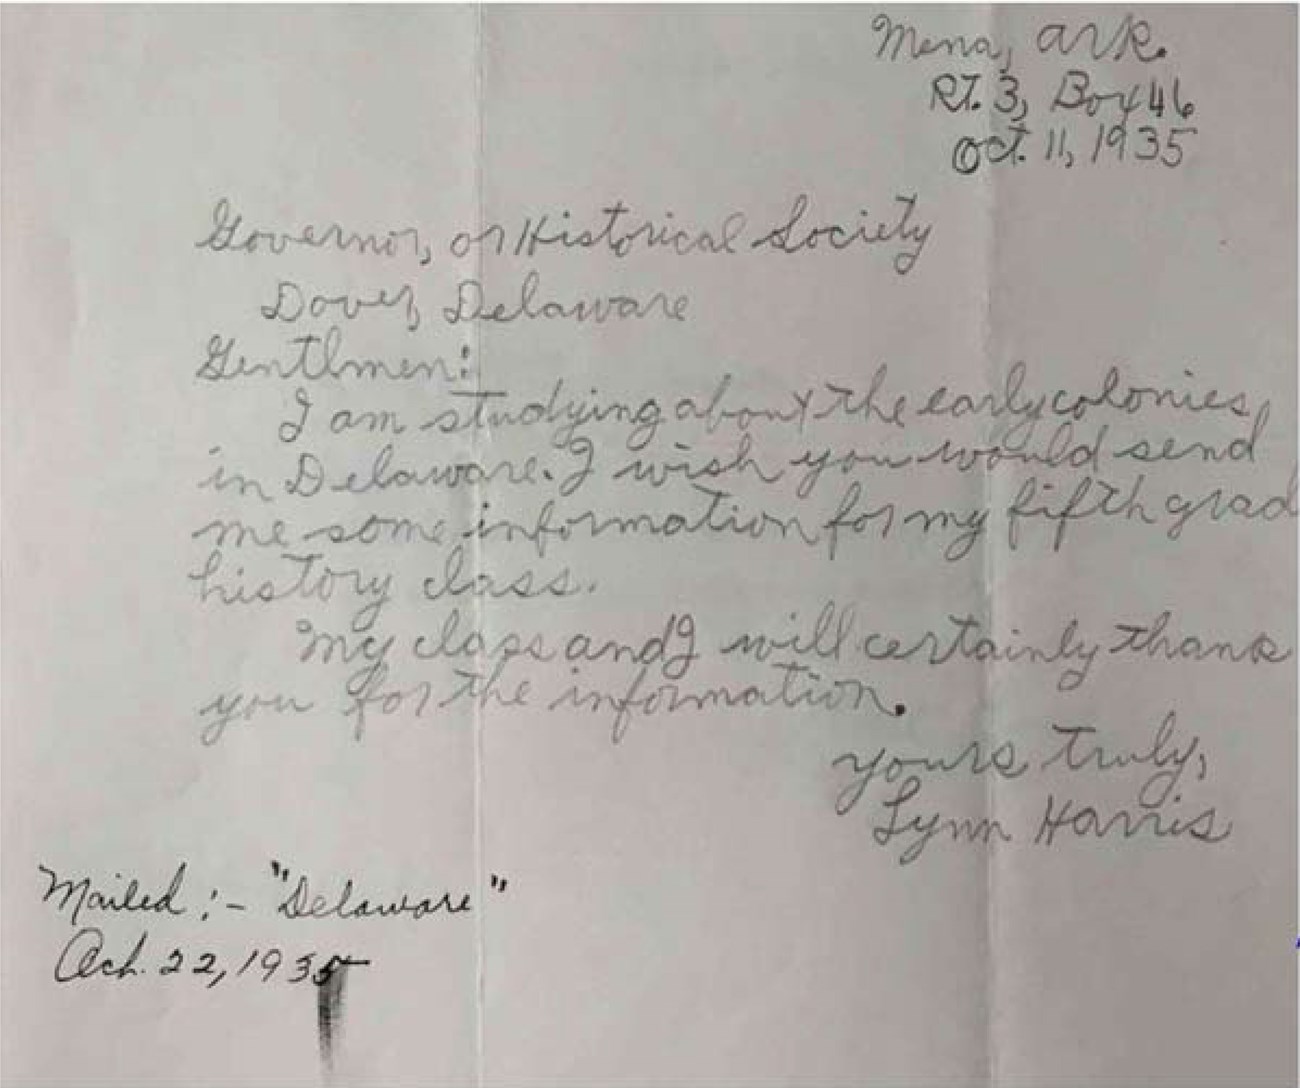 Mena, Ark.
Rt. 3, Box 46
Oct. 11, 1935
Governor, or Historical Society
Dover, Delaware
Gentlmen:
I am studying about the early colonies
in Delaware. I wish you would send
me some information for my fifth grad
history class.
My class and I will certainly thank
you for the information.
yours truly,
Lynn Harris
Mailed :- "Delaware"
Oct. 22, 1935